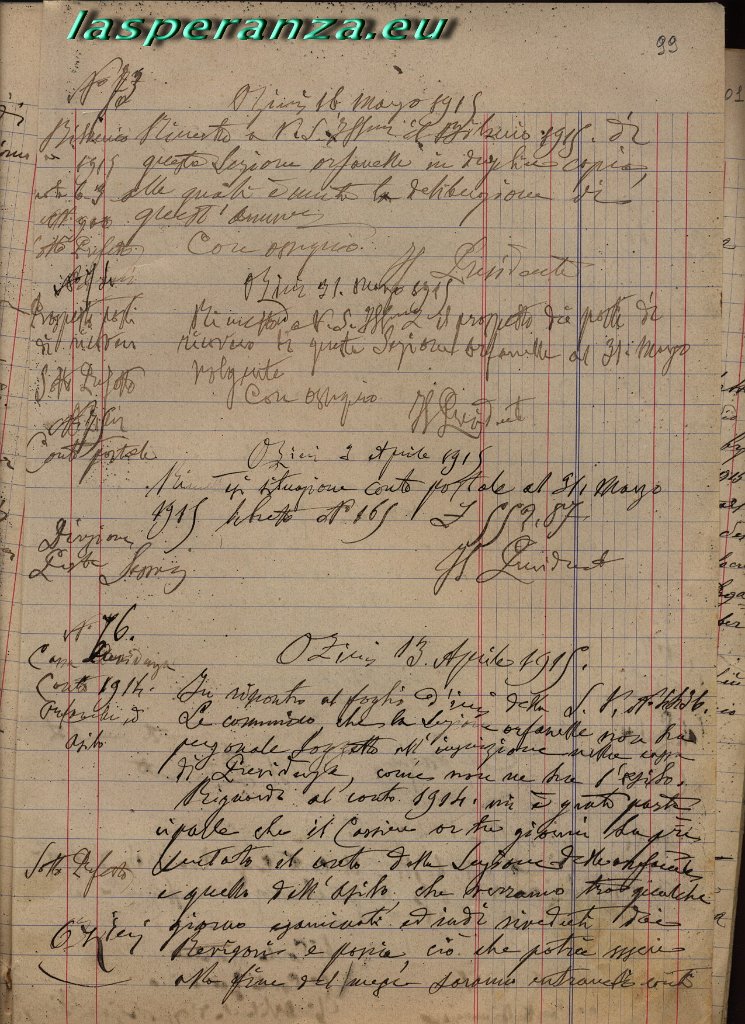 lasperanza.eu
99
N° 73
Ozieri 16 Marzo 1915
Bilancio
1915
Rimetto a V. S. Ill.ma il Bilancio 1915. di
questa Sezione orfanelle in duplice copia,
alle quali è unita la deliberazione di
quest'
Sotto Prefetto
Con ossequio
Il Presidente
Ozieri 31. Marzo 1915
Prospetto posti
di ricovero
Rimetto a V. S. Ill.ma il prospetto dei posti di
ricovero di questa Sezione orfanelle al 31. Marzo
volgente
Sotto Prefetto
Con ossequio
Il Presidente
Conto postale
Ozieri 2 Aprile 1915
situazione conto postale al 31. Marzo
1915 libretto N° 165 £ 552,87
Direzione
Poste Sassari
Il Presidente
N° 76.
Ozieri 13. Aprile 1915.
Cassa Previdenza
Conto 1914.
Orfanelle ed
Asilo
In riscontro al foglio d'ieri della S. V. N°
Le comunico che la Sezione orfanelle non ha
personale soggetto all'iscrizione nella cassa
di Previdenza, come non ne ha l'asilo.
Riguardo al conto 1914. mi è grato parte
ciparle che il Cassiere or tre giorni ha pre
sentato il conto della Sezione delle orfanelle
e quello dell'Asilo, che verranno tra qualche
giorno esaminati ed indi riveduti dai
Revisori e poscia, ciò che potrà essere
alla fine del mese saranno entrambi
Sotto Prefetto
Ozieri